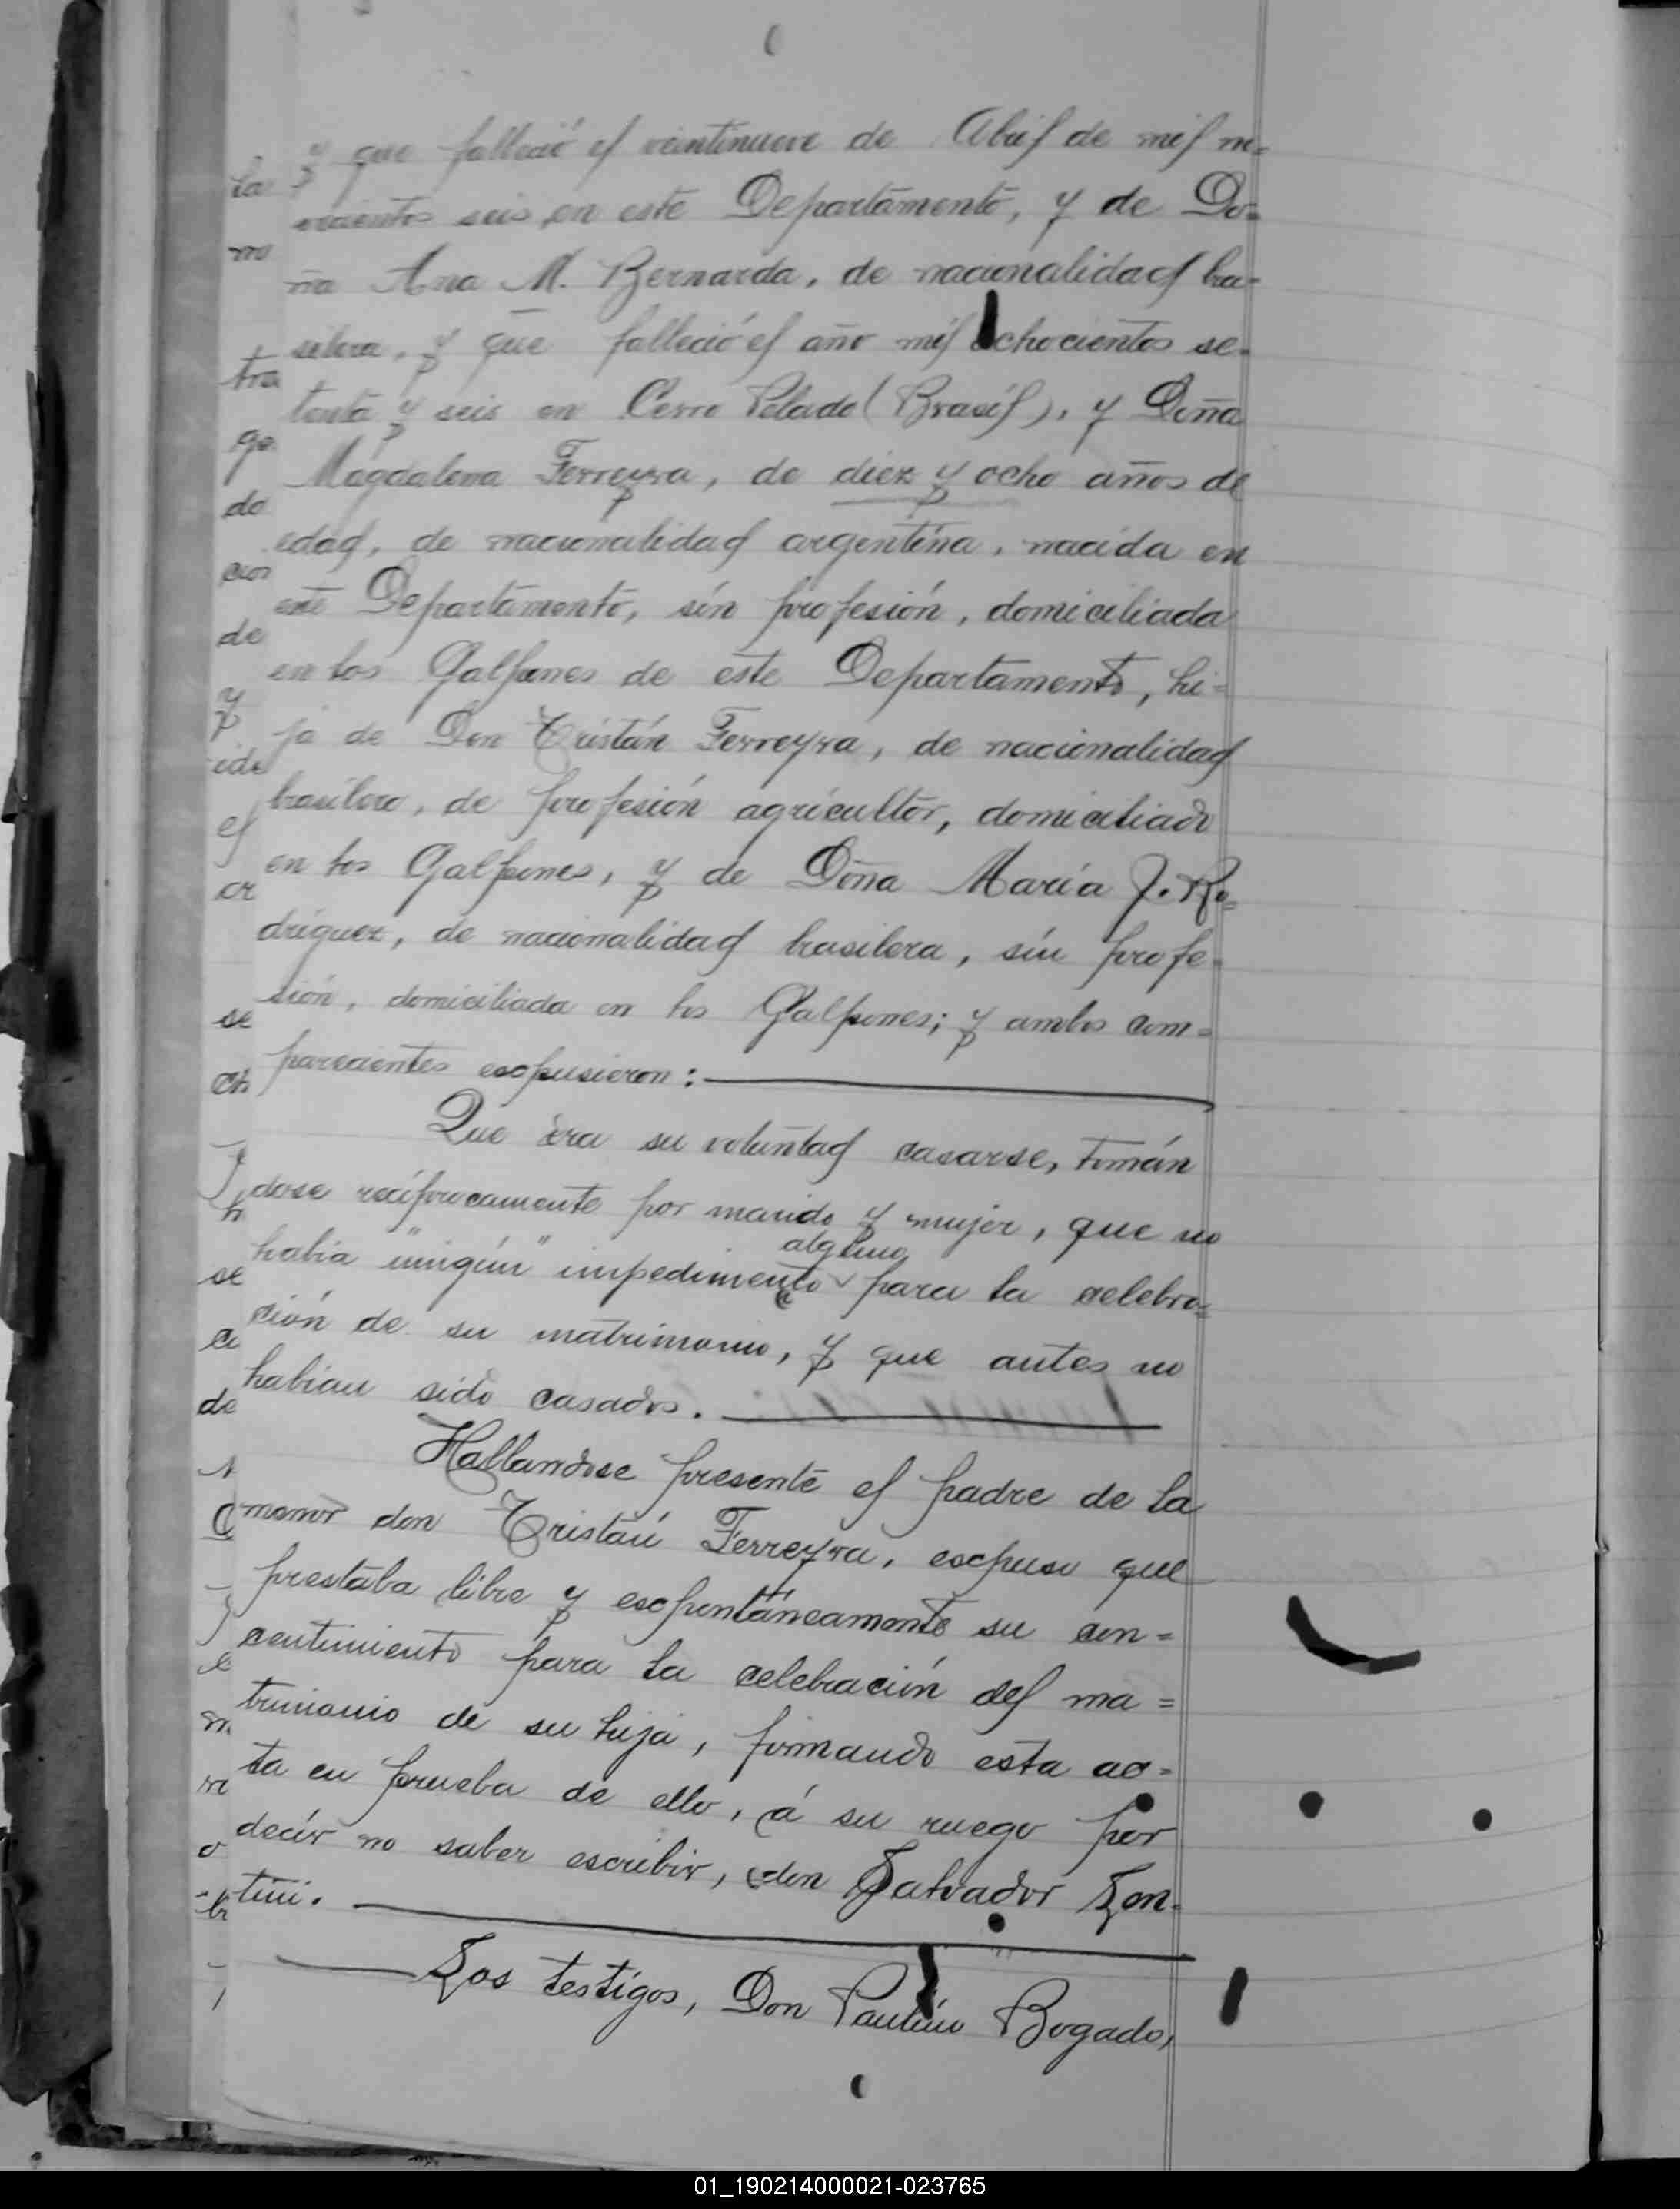 y que falleció el veintinueve de Abril de mil no=
vecientos seis en este Departamento, y de Do=
ña Ana M. Bernarda, de nacionalidad bra=
silera, y que falleció el año mil ochocientos se=
tenta y seis en Cerro Pelado (Brasil), y Doña
Magdalena Ferreyra, de diez y ocho años de
edad, de nacionalidad argentina, nacida en
este Departamento, sin profesión, domiciliada
en los Galpones de este Departamento, hi=
ja de Don Tristán Ferreyra, de nacionalidad
brasilero, de profesión agricultor, domiciliado
en los Galpones, y de Doña María J. Ro=
dríguez, de nacionalidad brasilera, sin profe=
sión, domiciliada en los Galpones; y ambos com=
parecientes escpusieron:
Que era su voluntad casarse, tomán
dose recíprocamente por marido y mujer, que no
alguno
habia "ningún" impedimento para la celebra=
ción de su matrimonio, y que antes no
habian sido casados.
Hallandose presente el padre de la
menor don Tristán Ferreyra, escpuso que
prestaba libre y escpontáneamente su con=
centimiento para la celebración del ma=
trimonio de su hija, firmando esta ac=
ta en prueba de ello, á su ruego por
decir no saber escribir, don Salvador Len=
tini.
Los testigos, Don Paulino Bogado,
01_190214000021-023765